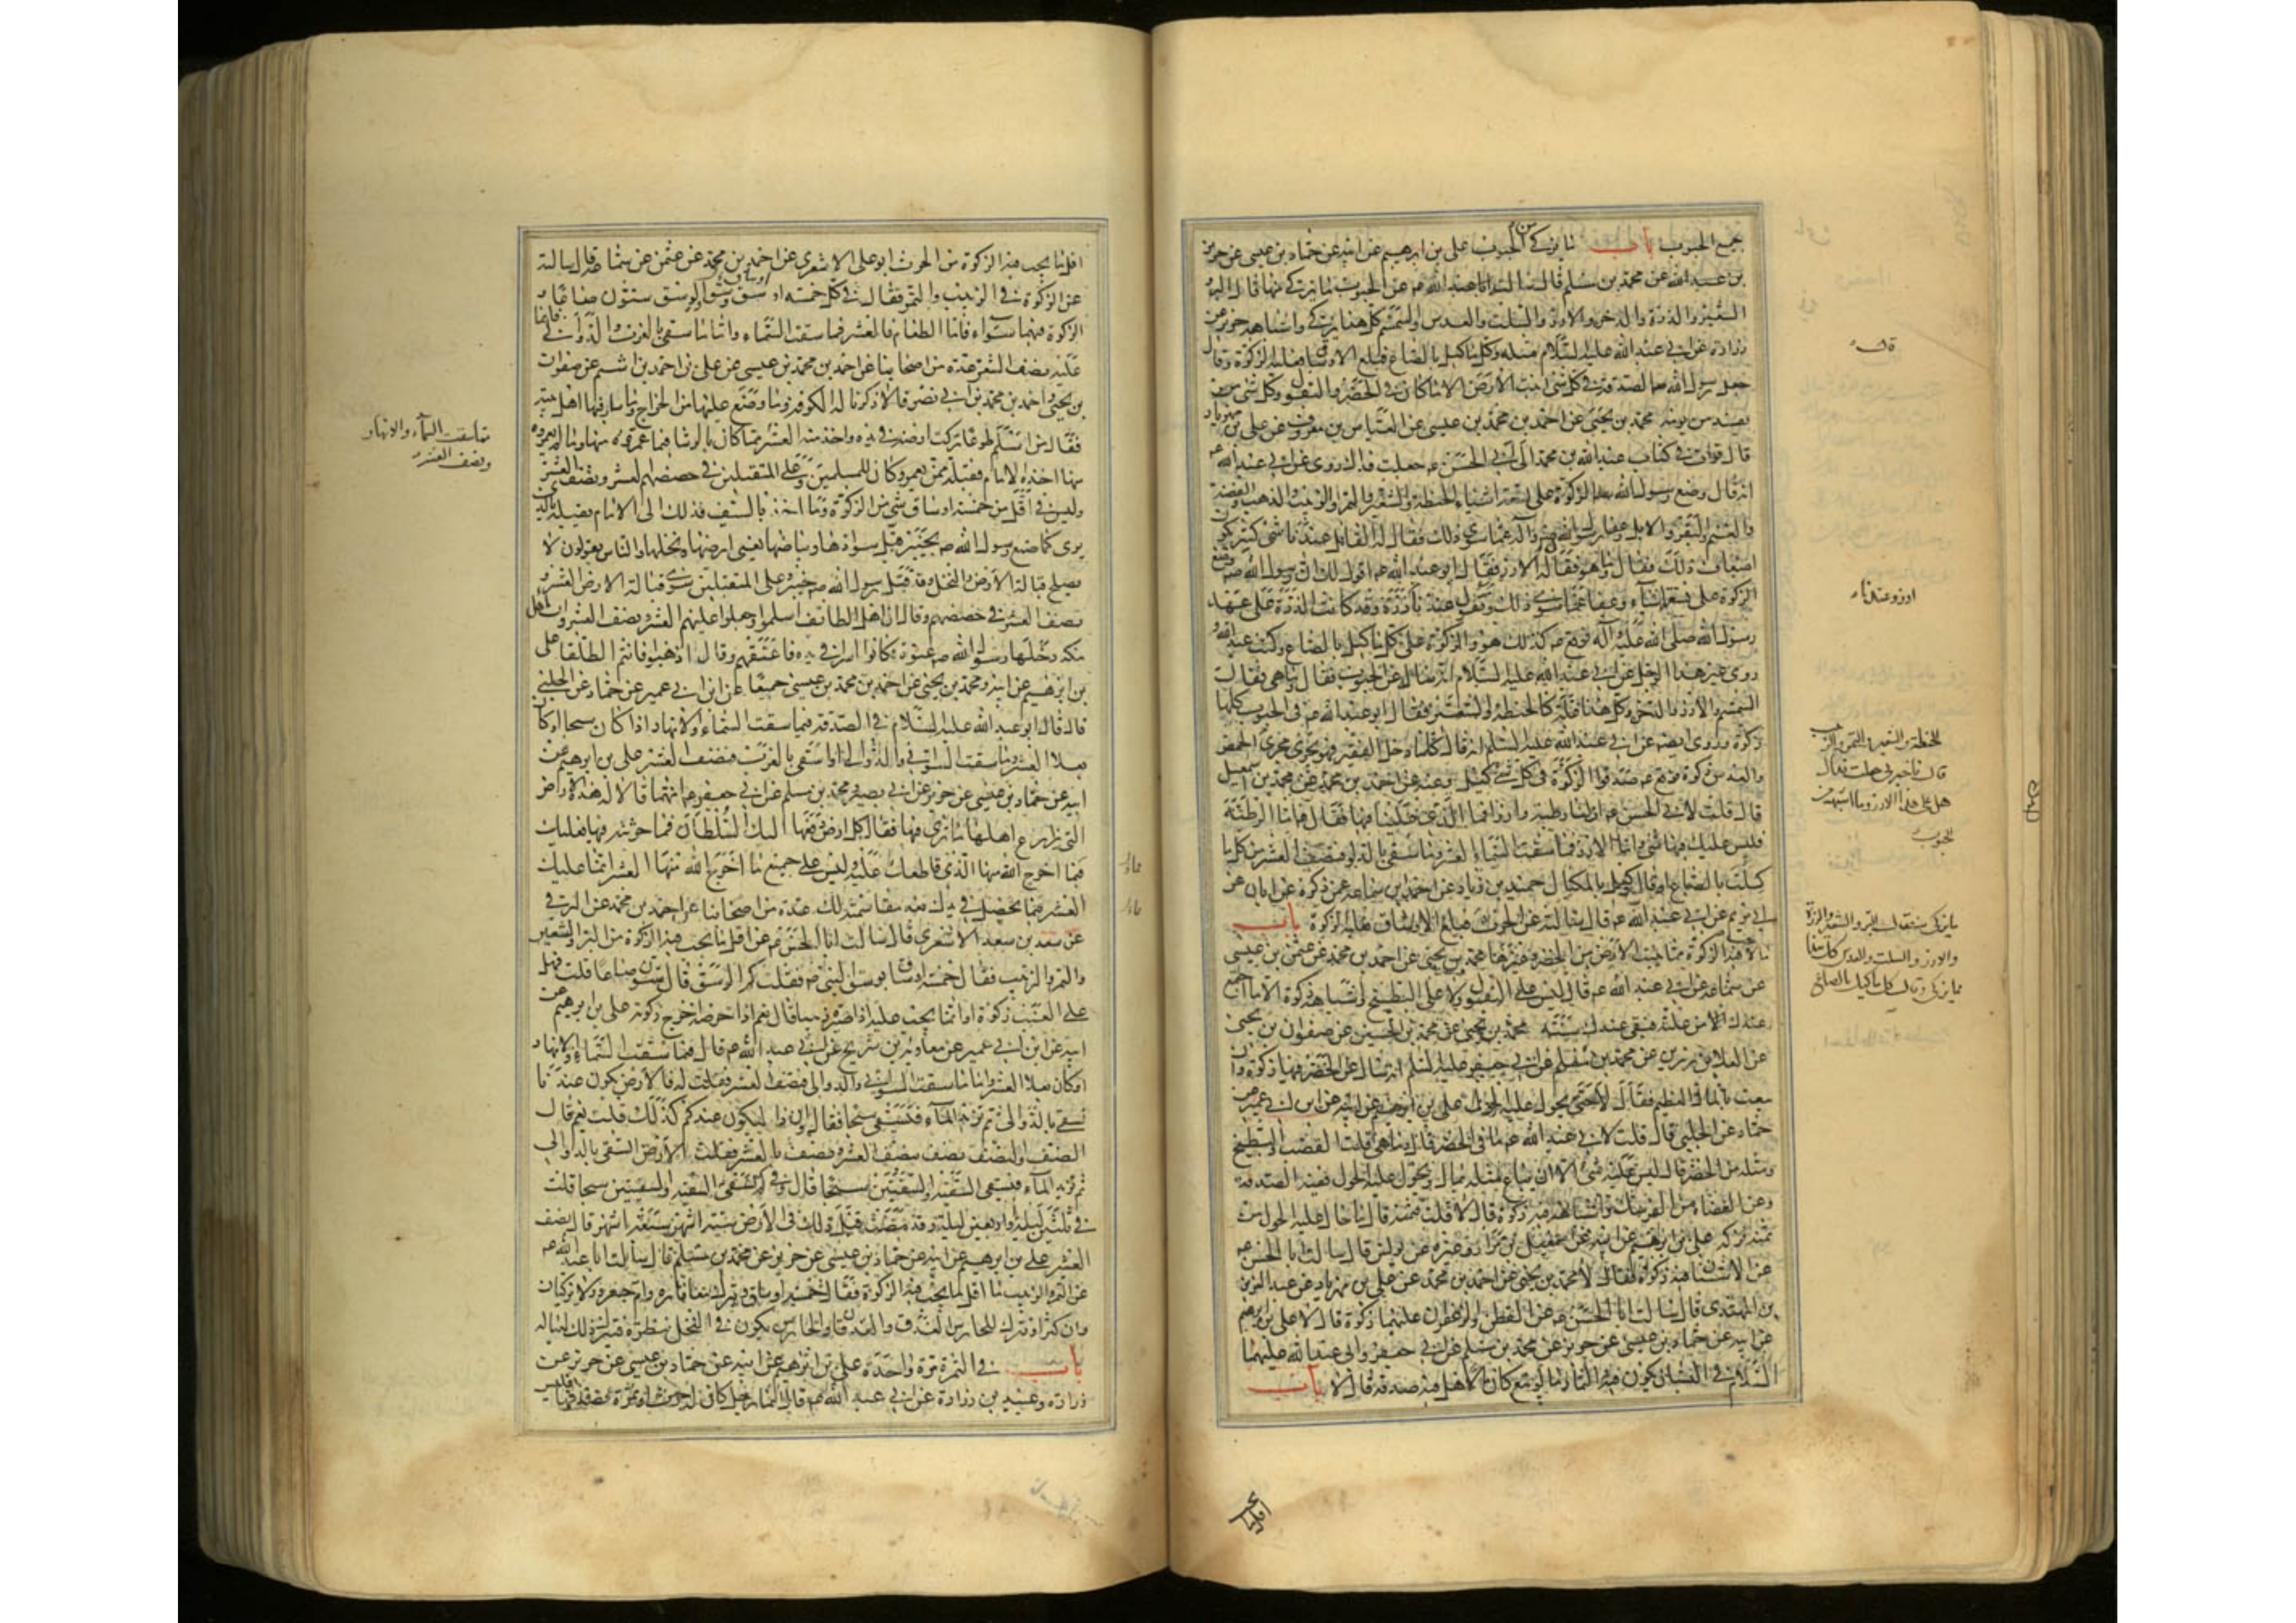 جميع الحبوب باب ما يزكى من الحبوب على بن ابرهيم عن ابيه عن حماد بن عيسى عن حريز
بن عبد الله عن محمد بن مسلم قال سالته عن الحبوب ما يزكى منها قال البر
الشعير والذرة والدخن والارز والسلت والعدس والسمسم كل هذا يزكى واشباهه حريز عن
زرارة عن ابى عبد الله عليه السلام مثله وكل ما كيل بالصاع فبلغ الاوساق فعليه الزكوة وقال
جعل رسول الله الصدقة فى كل شئ انبتت الارض الا ما كان فى الخضر والبقول وكل شئ
يفسد من يومه محمد بن يحيى عن احمد بن محمد بن عيسى عن العباس بن معروف عن على بن مهزيار
قال قرات فى كتاب عبد الله بن محمد الى ابى الحسن جعلت فداك روى عن ابى عبد الله
انه قال وضع رسول الله الزكوة على تسعة اشياء الحنطة والشعير والتمر والزبيب والذهب والفضة
والغنم والبقر والابل وعفا رسول الله عما سوى ذلك فقال له القائل عندنا شئ كثير يكون
اضعاف ذلك فقال وما هو فقال له الارز فقال ابو عبد الله اقول لك ان رسول الله وضع
الزكوة على تسعة اشياء وعفا عما سوى ذلك وتقول عندنا ارز وعندنا ذرة وقد كانت الذرة على عهد
رسول الله صلى الله عليه وآله فوقع كذلك هو والزكوة على كل ما كيل بالصاع وكتب عبد الله و
روى غير هذا الرجل عن ابى عبد الله عليه السلام انه ساله عن الحبوب فقال وما هى فقال
السمسم والارز والدخن وكل هذا غلة كالحنطة والشعير فقال ابو عبد الله فى الحبوب كلها
زكوة وروى ايضا عن ابى عبد الله عليه السلم انه قال كل ما دخل القفيز فهو يجرى مجرى
قال قلت لابى الحسن
فليس عليك فيها شئ واما الارز فما سقت السماء العشر وما سقى بالدلو فنصف العشر من كل ما
كلت بالصاع او قال وكيل بالمكيال حميد بن زياد عن احمد بن سماعة عمن ذكره عن ابان عن
ابى مريم عن ابى عبد الله قال سالته عن الحرث فبلغ الاوساق فعليه الزكوة باب
ما لا يجب فيه الزكوة مما تنبت الارض من الخضر وغيرها محمد بن يحيى عن احمد بن محمد عن عثمن بن عيسى
عن سماعة عن ابى عبد الله قال ليس على البقول ولا على البطيخ واشباهه زكوة الا ما اجتمع
عندك من غلته فبقى عندك سنة محمد بن يحيى عن محمد بن الحسين عن صفوان بن يحيى
عن العلا بن رزين عن محمد بن مسلم عن ابى جعفر عليه السلم انه سئل عن الخضر فيها زكوة وان
بيعت بالمال العظيم فقال لا حتى يحول عليه الحول على بن ابرهيم عن ابيه عن ابن ابى عمير عن
حماد عن الحلبى قال قلت لابى عبد الله ما فى الخضر قال وما هى قلت القضب والبطيخ
ومثله من الخضر قال ليس عليه شئ الا ان يباع مثله بمال ويحول عليه الحول ففيه الصدقة
وعن الغضاة من الفرسك واشباهه فيه زكوة قال لا قلت فثمنه قال ما حال عليه الحول من
ثمنه فزكه
عن الاشنان فيه زكوة فقال لا محمد بن يحيى عن احمد بن محمد عن على بن مهزيار عن عبد العزيز
بن المهتدى قال سالت ابا الحسن عن القطن والزعفران عليهما زكوة قال لا على بن ابرهيم
عن ابيه عن حماد بن عيسى عن حريز عن محمد بن مسلم عن ابى جعفر وابى عبد الله عليهما
السلام فى البستان يكون فيه الثمار ما لو بيع كان مالا هل فيه صدقة قال لا باب
قال
ارز وعندنا
الحنطة والشعير والتمر والزبيب
والارز والسلت والعدس كل هذا
مما يزكى وقال كل ما كيل بالصاع
اقل ما يجب فيه الزكوة من الحرث ابو على الاشعرى عن احمد بن محمد عن عثمن عن سماعة قال سالته
عن الزكوة فى الزبيب والتمر فقال فى كل خمسة اوساق وسق والوسق ستون صاعا و
الزكوة فيهما سواء فاما الطعام فالعشر فيما سقت السماء واما ما سقى بالغرب والدوالى فانما
عليه نصف العشر عدة من اصحابنا عن احمد بن محمد بن عيسى عن على بن احمد بن اشيم عن صفوان
بن يحيى واحمد بن محمد بن ابى نصر قالا ذكرنا له الكوفة وما وضع عليها من الخراج وما سار فيها اهل بيته
فقال من اسلم طوعا تركت ارضه فى يده واخذ منه العشر مما كان بالرشا فيما عمروه منها وما لم يعمروه
منها اخذه الامام فقبله ممن يعمره وكان للمسلمين وعلى المتقبلين فى حصصهم العشر ونصف العشر
وليس فى اقل من خمسة اوساق شئ من الزكوة وما اخذ بالسيف فذلك الى الامام يقبله بالذى
يرى كما صنع رسول الله بخيبر قبل سوادها وبياضها يعنى ارضها ونخلها والناس يقولون لا
يصلح قبالة الارض والنخل وقد قبل رسول الله خيبر وعلى المتقبلين سوى قبالة الارض العشر و
نصف العشر فى حصصهم وقال ان اهل الطائف اسلموا وجعلوا عليهم العشر ونصف العشر وان اهل
مكة دخلها رسول الله عنوة فكانوا اسراء فى يده فاعتقهم وقال اذهبوا فانتم الطلقا على
بن ابرهيم عن ابيه ومحمد بن يحيى عن احمد بن محمد بن عيسى جميعا عن ابن ابى عمير عن حماد عن الحلبى
قال قال ابو عبد الله عليه السلام فى الصدقة فيما سقت السماء والانهار اذا كان سيحا او كان
بعلا العشر وما سقت السوانى والدوالى او سقى بالغرب فنصف العشر على بن ابرهيم عن
ابيه عن حماد بن عيسى عن حريز عن ابى بصير ومحمد بن مسلم عن ابى جعفر انهما قالا له هذه الارض
التى يزارع اهلها ما ترى فيها فقال كل ارض دفعها اليك السلطان فما حرثته فيها فعليك
فيما اخرج الله منها الذى قاطعك عليه وليس على جميع ما اخرج الله منها العشر انما عليك
العشر فيما يحصل فى يدك بعد مقاسمته لك عدة من اصحابنا عن احمد بن محمد عن البرقى
عن سعد بن سعد الاشعرى قال سالت ابا الحسن عن اقل ما يجب فيه الزكوة من البر والشعير
والتمر والزبيب فقال خمسة اوساق بوسق النبى فقلت كم الوسق قال ستون صاعا قلت فهل
على العنب زكوة او انما يجب عليه اذا صيره زبيبا قال نعم اذا خرصه اخرج زكوته على بن ابرهيم عن
ابيه عن ابن ابى عمير عن معاوية بن شريح عن ابى عبد الله قال فيما سقت السماء والانهار
او كان بعلا العشر واما ما سقت السوانى والدوالى فنصف العشر فقلت له فالارض يكون عندنا
تسقى بالدوالى ثم يزيد الماء فتسقى سيحا فقال وان ذا ليكون عندكم كذلك قلت نعم قال
النصف والنصف نصف بنصف العشر ونصف بالعشر فقلت الارض تسقى بالدوالى
ثم يزيد الماء فتسقى السقية والسقيتين سيحا قال وفى كم تسقى السقية والسقيتين سيحا قلت
فى ثلثين ليلة او اربعين ليلة وقد مضت قبل ذلك فى الارض ستة اشهر سبعة اشهر قال نصف
العشر على بن ابرهيم عن ابيه عن حماد بن عيسى عن حريز عن محمد بن مسلم قال سالت ابا عبد الله
عن التمر والزبيب ما اقل ما يجب فيه الزكوة فقال خمسة اوساق ويترك معافارة وام جعرور لا يزكيان
وان كثرا ويترك للحارس العذق والعذقان والحارس يكون فى النخل ينظره فيترك ذلك لعياله
باب فى الثمرة مرة واحدة على بن ابرهيم عن ابيه عن حماد بن عيسى عن حريز عن
زرارة وعبيد بن زرارة عن ابى عبد الله قال ايما رجل كان له حرث او ثمرة فصدقها فليس
ونصف العشر